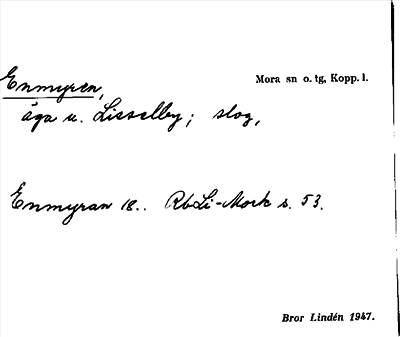 Enmyren,
Mora sn o. tg, Kopp. l.
äga u. Lisselby; slog,
Enmyran 18.. RbLi-Mork s. 53.
Bror Lindén 1947.